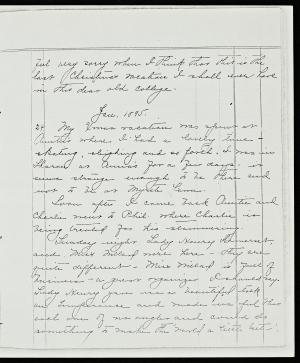 feel very sorry when I think that this is the
last Christmas vacation I shall ever have
in this dear old college.
Jan. 1895.
My Xmas vacation was spent at
Auntie's where I had a lovely time -
skating, sleighing and so forth. I was in
Sharon at Anna's for a few days, it
seems strange enough to be there and
not to be at Myrtle
Soon after I came back Auntie and
Charlie went to Phil. where Charlie is
being treated for his stammering.
Sunday night Lady Henry Somerset
and Miss Willard were here - they are
quite different - Miss Willard is full of
business - a great organizer I should say.
Lady Henry gave us a beautiful talk
on temperance and made us feel that
each one of us ought and could do
something to make the world a little better.